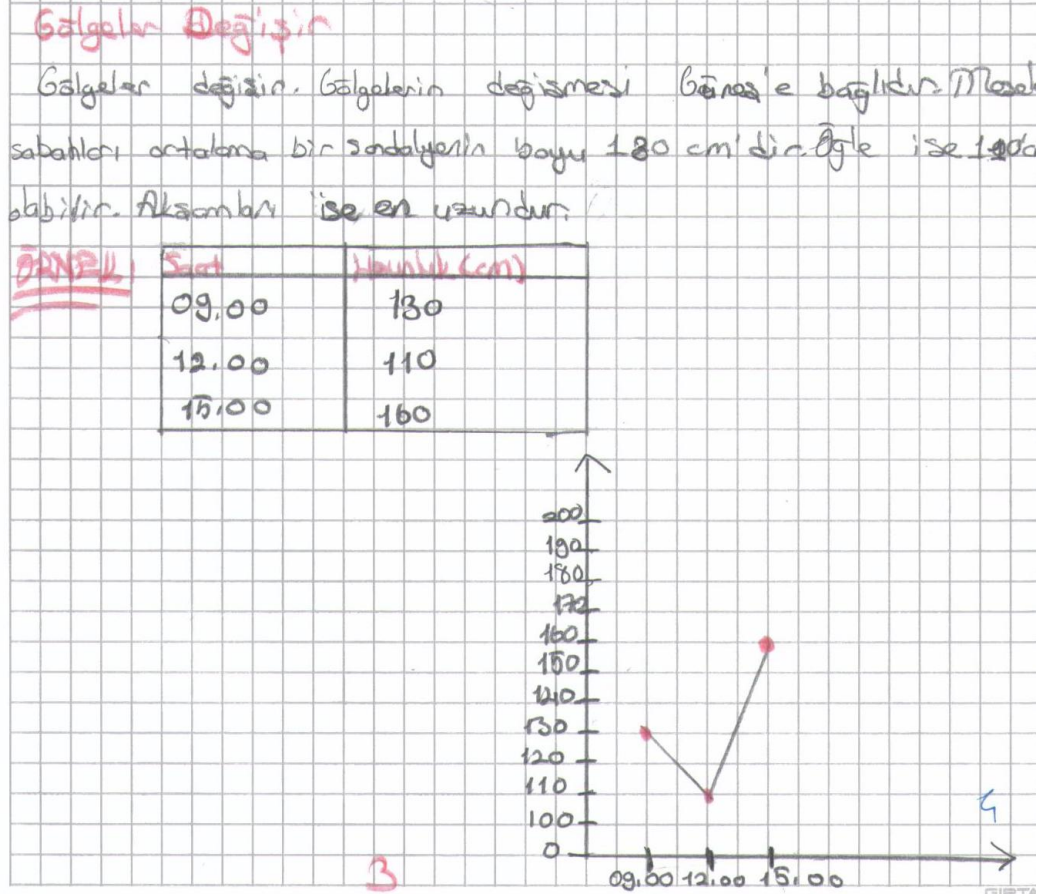 Gölgeler Değişir
Gölgeler değişir. Gölgelerin değişmesi Güneş'e bağlıdır. Mesel
sabahları ortalama bir sandalyenin boyu 130 cm'dir. Öğle ise 100
olabilir. Akşamları ise en uzundur.
ÖRNEK: Saat Uzunluk (cm)
09.00 130
12.00 110
15.00 160
200
190
180
170
160
150
140
130
120
110
100
0
09.00 12.00 15.00
3